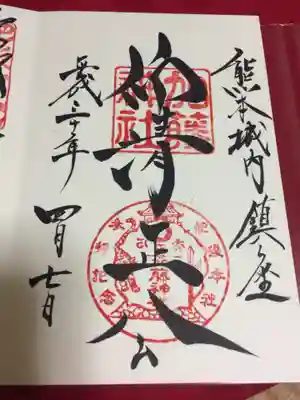 熊本城内鎮座
仰清正公
加藤
神社
平成三十年 四月七日